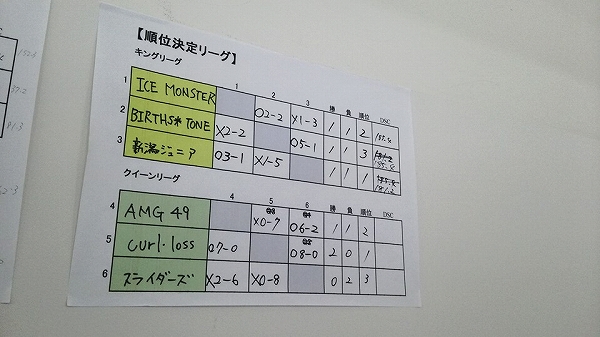 【順位決定リーグ】
キングリーグ
1 2 3 勝 負 順位 DSC
1 ICE MONSTER O2-2 X1-3 1 1 2
2 BIRTHS* TONE X2-2 O5-1 1 1 3
3 新潟ジュニア O3-1 X1-5 1 1 1 181.2
クイーンリーグ
4 5 6 勝 負 順位 DSC
4 AMG 49 X0-7 O6-2 1 1 2
5 curl・loss O7-0 O8-0 2 0 1
6 スライダーズ X2-6 X0-8 0 2 3